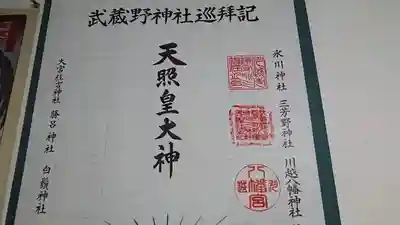 武蔵野神社巡拝記
天照皇大神
氷川神社
三芳野神社
川越八幡神社
大宮住吉神社
勝呂神社
白鬚神社
八幡宮